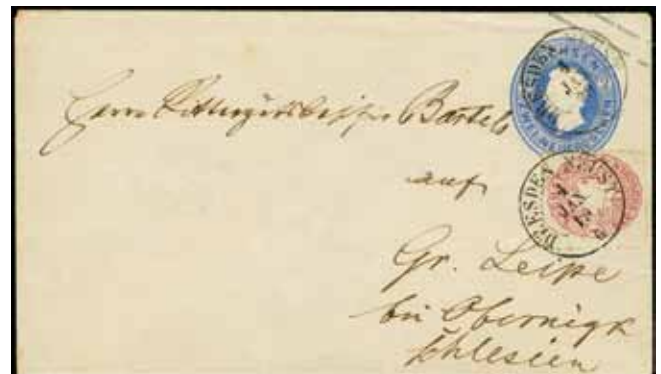 Herrn Rittergutsbesitzer Bartels
auf
Gr. Leipe
bei Obernigk
Schlesien
DRESDEN NEUST